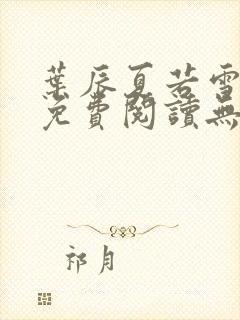 葉辰夏若雪
免費閱讀無
祁月